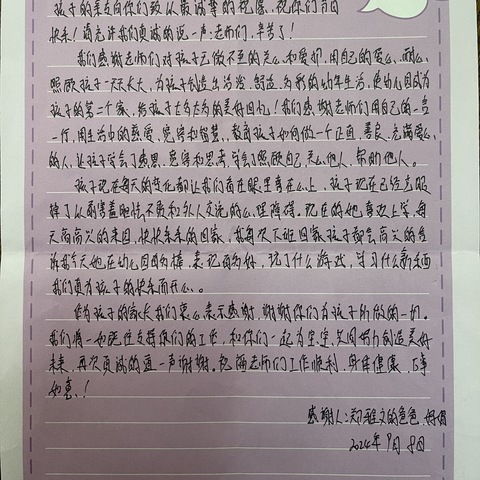 孩子的亲爱的你们致以最诚挚的祝愿，祝你们节日
快乐！请允许我们真诚的说一声：老师们，辛苦了！
我们感谢老师们对孩子无微不至的关心和爱护，用自己的爱心、耐心，
照顾孩子一天天长大，为孩子创造出活泼、多彩的幼年生活，使幼儿园成为
孩子的第一个家，给孩子
我们感谢老师们用自己的一言
一行，用生活中的慈爱、宽容和智慧，教育孩子如何做一个正直、善良、充满爱心
的人，让孩子学会了感恩、宽容和思考，学会了照顾自己，关心他人，帮助他人。
孩子现在每天的变化都让我们看在眼里喜在心上，孩子现在已经克服
掉了从前害羞胆怯不爱和外人交流的心理障碍。现在的她喜欢上学，每
天高高兴兴的来园，快快乐乐的回家，我每次下班回家孩子都会高兴的告
诉我今天她在幼儿园
玩了什么游戏，学习什么新东西
我们真为孩子的快乐而开心。
作为孩子的家长我们衷心表示感谢，谢谢你们为孩子所做的一切。
我们将一如既往支持你们的工作，和你们一起为宝宝
创造美好
未来，再次真诚的道一声谢谢。祝福老师们工作顺利，身体健康，万事
如意！
感谢人：郑雅文的爸爸、妈妈
2024年9月8日